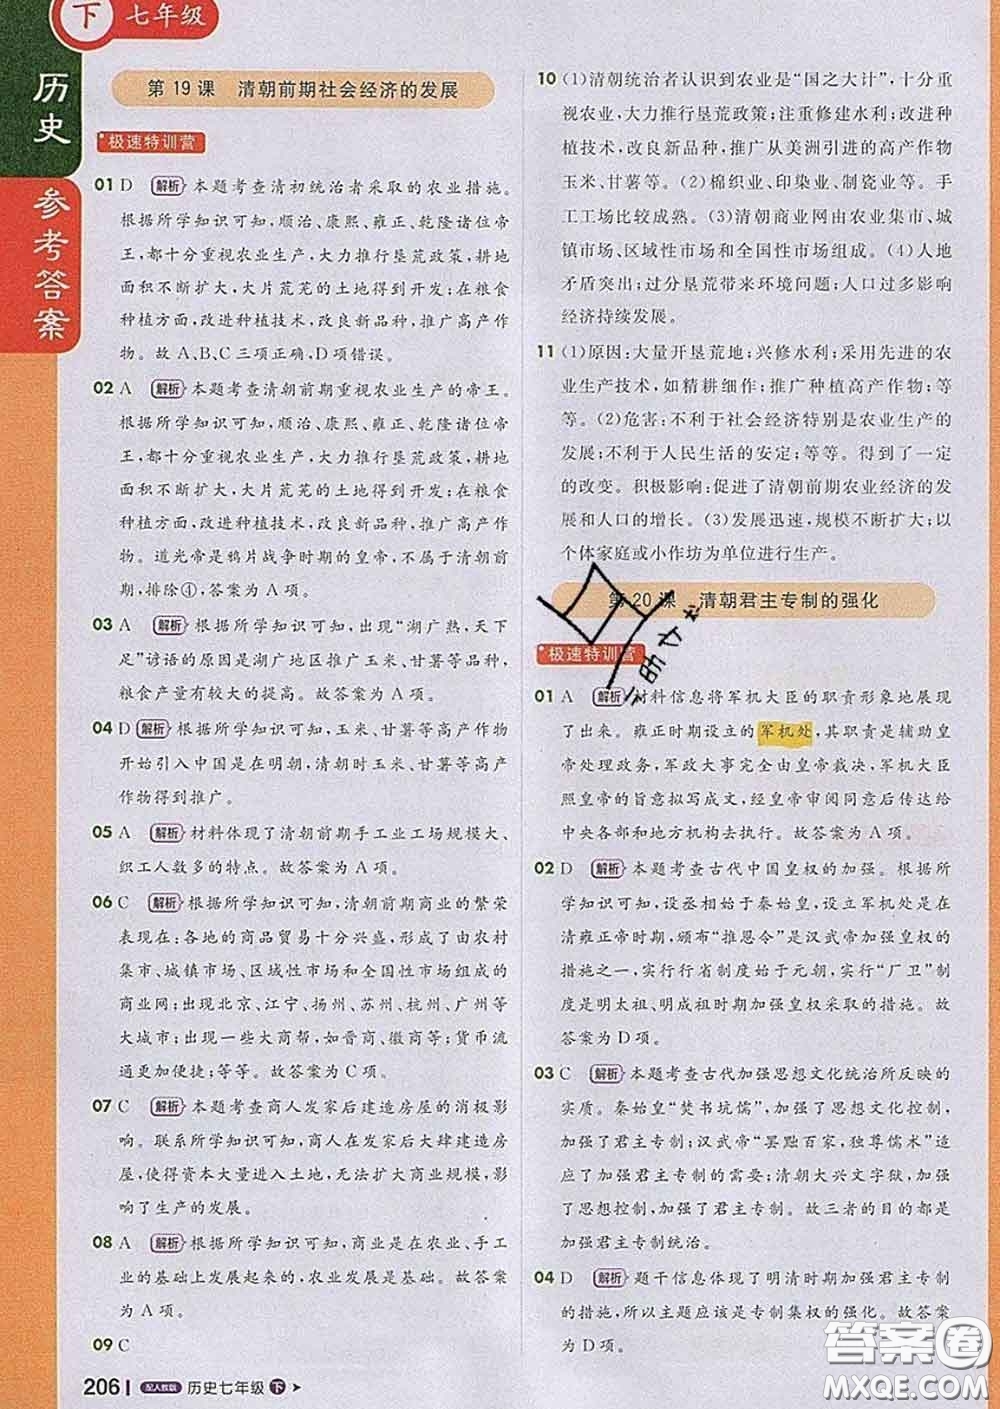 下 七年级
历史
参考答案
第 19 课 清朝前期社会经济的发展
极速特训营
01 D 解析 本题考查清初统治者采取的农业措施。
根据所学知识可知,顺治、康熙、雍正、乾隆诸位帝
王,都十分重视农业生产,大力推行垦荒政策,耕地
面积不断扩大,大片荒芜的土地得到开发;在粮食
种植方面,改进种植技术,改良新品种,推广高产作
物。故 A、B、C 三项正确,D 项错误。
02 A 解析 本题考查清朝前期重视农业生产的帝王。
根据所学知识可知,顺治、康熙、雍正、乾隆诸位帝
王,都十分重视农业生产,大力推行垦荒政策,耕地
面积不断扩大,大片荒芜的土地得到开发;在粮食
种植方面,改进种植技术,改良新品种,推广高产作
物。道光帝是鸦片战争时期的皇帝,不属于清朝前
期,排除④,答案为 A 项。
03 A 解析 根据所学知识可知,出现“湖广熟,天下
足”谚语的原因是湖广地区推广玉米、甘薯等品种,
粮食产量有较大的提高。故答案为 A 项。
04 D 解析 根据所学知识可知,玉米、甘薯等高产作物
开始引入中国是在明朝,清朝时玉米、甘薯等高产
作物得到推广。
05 A 解析 材料体现了清朝前期手工业工场规模大、
织工人数多的特点。故答案为 A 项。
06 C 解析 根据所学知识可知,清朝前期商业的繁荣
表现在:各地的商品贸易十分兴盛,形成了由农村
集市、城镇市场、区域性市场和全国性市场组成的
商业网;出现北京、江宁、扬州、苏州、杭州、广州等
大城市;出现一些大商帮,如晋商、徽商等;货币流
通更加便捷;等等。故答案为 C 项。
07 C 解析 本题考查商人发家后建造房屋的消极影
响。联系所学知识可知,商人在发家后大肆建造房
屋,使得资本大量进入土地,无法扩大商业规模,影
响了生产的发展。
08 A 解析 根据所学知识可知,商业是在农业、手工
业的基础上发展起来的,农业发展是基础。故答案
为 A 项。
09 C
206 配人教版 历史七年级 下
10 (1)清朝统治者认识到农业是“国之大计”,十分重
视农业,大力推行垦荒政策;注重修建水利;改进种
植技术,改良新品种,推广从美洲引进的高产作物
玉米、甘薯等。(2)棉织业、印染业、制瓷业等。手
工工场比较成熟。(3)清朝商业网由农业集市、城
镇市场、区域性市场和全国性市场组成。(4)人地
矛盾突出;过分垦荒带来环境问题;人口过多影响
经济持续发展。
11 (1)原因:大量开垦荒地;兴修水利;采用先进的农
业生产技术,如精耕细作;推广种植高产作物;等
等。(2)危害:不利于社会经济特别是农业生产的
发展;不利于人民生活的安定;等等。得到了一定
的改变。积极影响:促进了清朝前期农业经济的发
展和人口的增长。(3)发展迅速,规模不断扩大;以
个体家庭或小作坊为单位进行生产。
第 20 课 清朝君主专制的强化
极速特训营
01 A 解析 材料信息将军机大臣的职责形象地展现
了出来。雍正时期设立的军机处,其职责是辅助皇
帝处理政务,军政大事完全由皇帝裁决,军机大臣
照皇帝的旨意拟写成文,经皇帝审阅同意后传达给
中央各部和地方机构去执行。故答案为 A 项。
02 D 解析 本题考查古代中国皇权的加强。根据所
学知识可知,设丞相始于秦始皇,设立军机处是在
清雍正帝时期,颁布“推恩令”是汉武帝加强皇权的
措施之一,实行行省制度始于元朝,实行“厂卫”制
度是明太祖、明成祖时期加强皇权采取的措施。故
答案为 D 项。
03 C 解析 本题考查古代加强思想文化统治所反映的
实质。秦始皇“焚书坑儒”,加强了思想文化控制,
加强了君主专制;汉武帝“罢黜百家,独尊儒术”适
应了加强君主专制的需要;清朝大兴文字狱,加强
了思想控制,加强了君主专制。故三者的目的都是
加强君主专制统治。
04 D 解析 题干信息体现了明清时期加强君主专制
的措施,所以主题应该是专制集权的强化。故答案
为 D 项。
答案圈
MXQE.COM